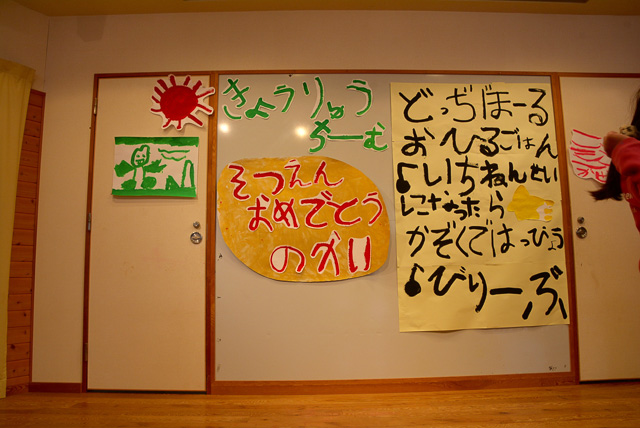 きょうりゅう
ちーむ
そつえん
おめでとう
のかい
どっぢぼーる
おひるごはん
♪いちねんせい
になったら
かぞくではっぴょう
♪びりーぶ